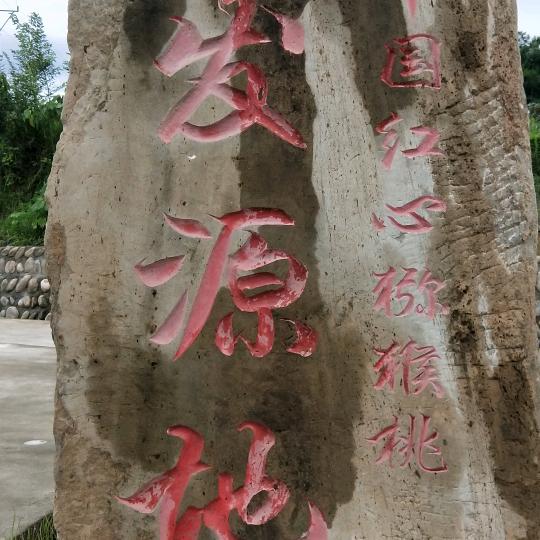 中国红心猕猴桃
发源地